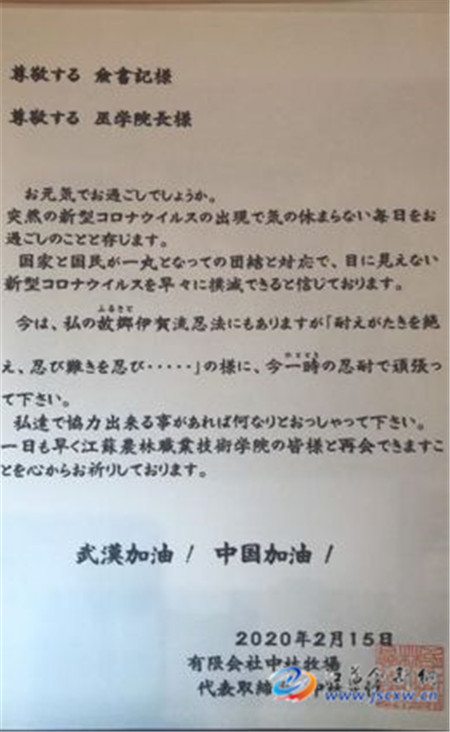 尊敬する 兪書記様
尊敬する 巫学院長様
お元気でお過ごしでしょうか。
突然の新型コロナウイルスの出現で気の休まらない毎日をお
過ごしのことと存じます。
国家と国民が一丸となっての団結と対応で、目に見えない
新型コロナウイルスを早々に撲滅できると信じております。
ふるさと
今は、私の故郷伊賀流忍法にもありますが「耐えがたきを絶
ひととき
え、忍び難きを忍び・・・・・」の様に、今一時の忍耐で頑張っ
て下さい。
私達で協力出来る事があれば何なりとおっしゃって下さい。
一日も早く江蘇農林職業技術学院の皆様と再会できますこ
とを心からお祈りしております。
武漢加油! 中国加油!
2020年2月15日
有限会社中林牧場
代表取締
www.jscxw.cn